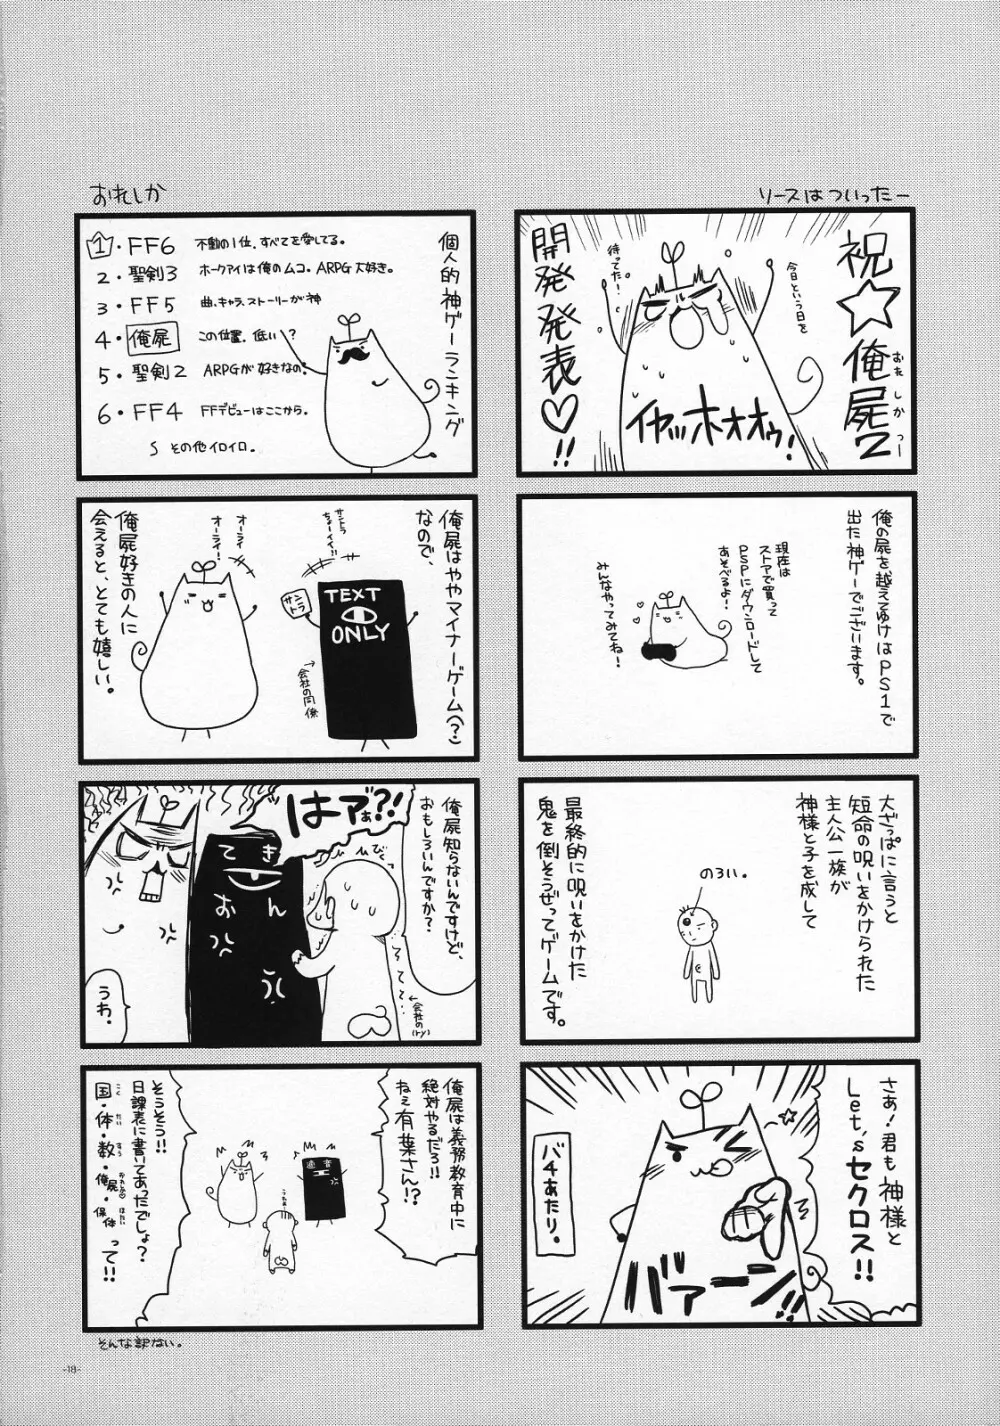 ソースはついったー
祝☆俺屍2
おれしかつー
開発発表♡!!
今日という日を
待ってた!
イヤッホオオゥ!
俺の屍を越えてゆけはPS1で
出た神ゲーでございます。
現在は
ストアで買って
PSPにダウンロードして
あそべるよ!
みんなやってみてね!
大ざっぱに言うと
短命の呪いをかけられた
主人公一族が
神様と子を成して
のろい。
最終的に呪いをかけた
鬼を倒そうぜってゲームです。
さぁ!君も神様と
Let'sセクロス!!
バチあたり。
バァーン!!
おれしか
個人的神ゲーランキング
1・FF6 不動の1位、すべてを愛してる。
2・聖剣3 ホークアイは俺のムコ。ARPG大好き。
3・FF5 曲、キャラ、ストーリーが神
4・俺屍 この位置、低い?
5・聖剣2 ARPGが好きなの。
6・FF4 FFデビューはここから。
S その他イロイロ。
俺屍はややマイナーゲーム(?)
なので、
サントラ
ちょーイイ!!
サントラ
TEXT
ONLY
→会社の同僚
オーライ
オーライ!
俺屍好きの人に
会えると、とても嬉しい。
俺屍知らないんですけど、
おもしろいんですか?
びくっ
はァ゙ぁ?!
てき
おん
←会社の(ry)
うわ。
俺屍は義務教育中に
絶対やるだろ!!
ねえ有葉さん!?
適音
そうそう!!
日課表に書いてあったでしょ?
国・体・数・俺屍・保体って!!
こく たい すう おれしか ほたい
そんな訳ない。
-18-